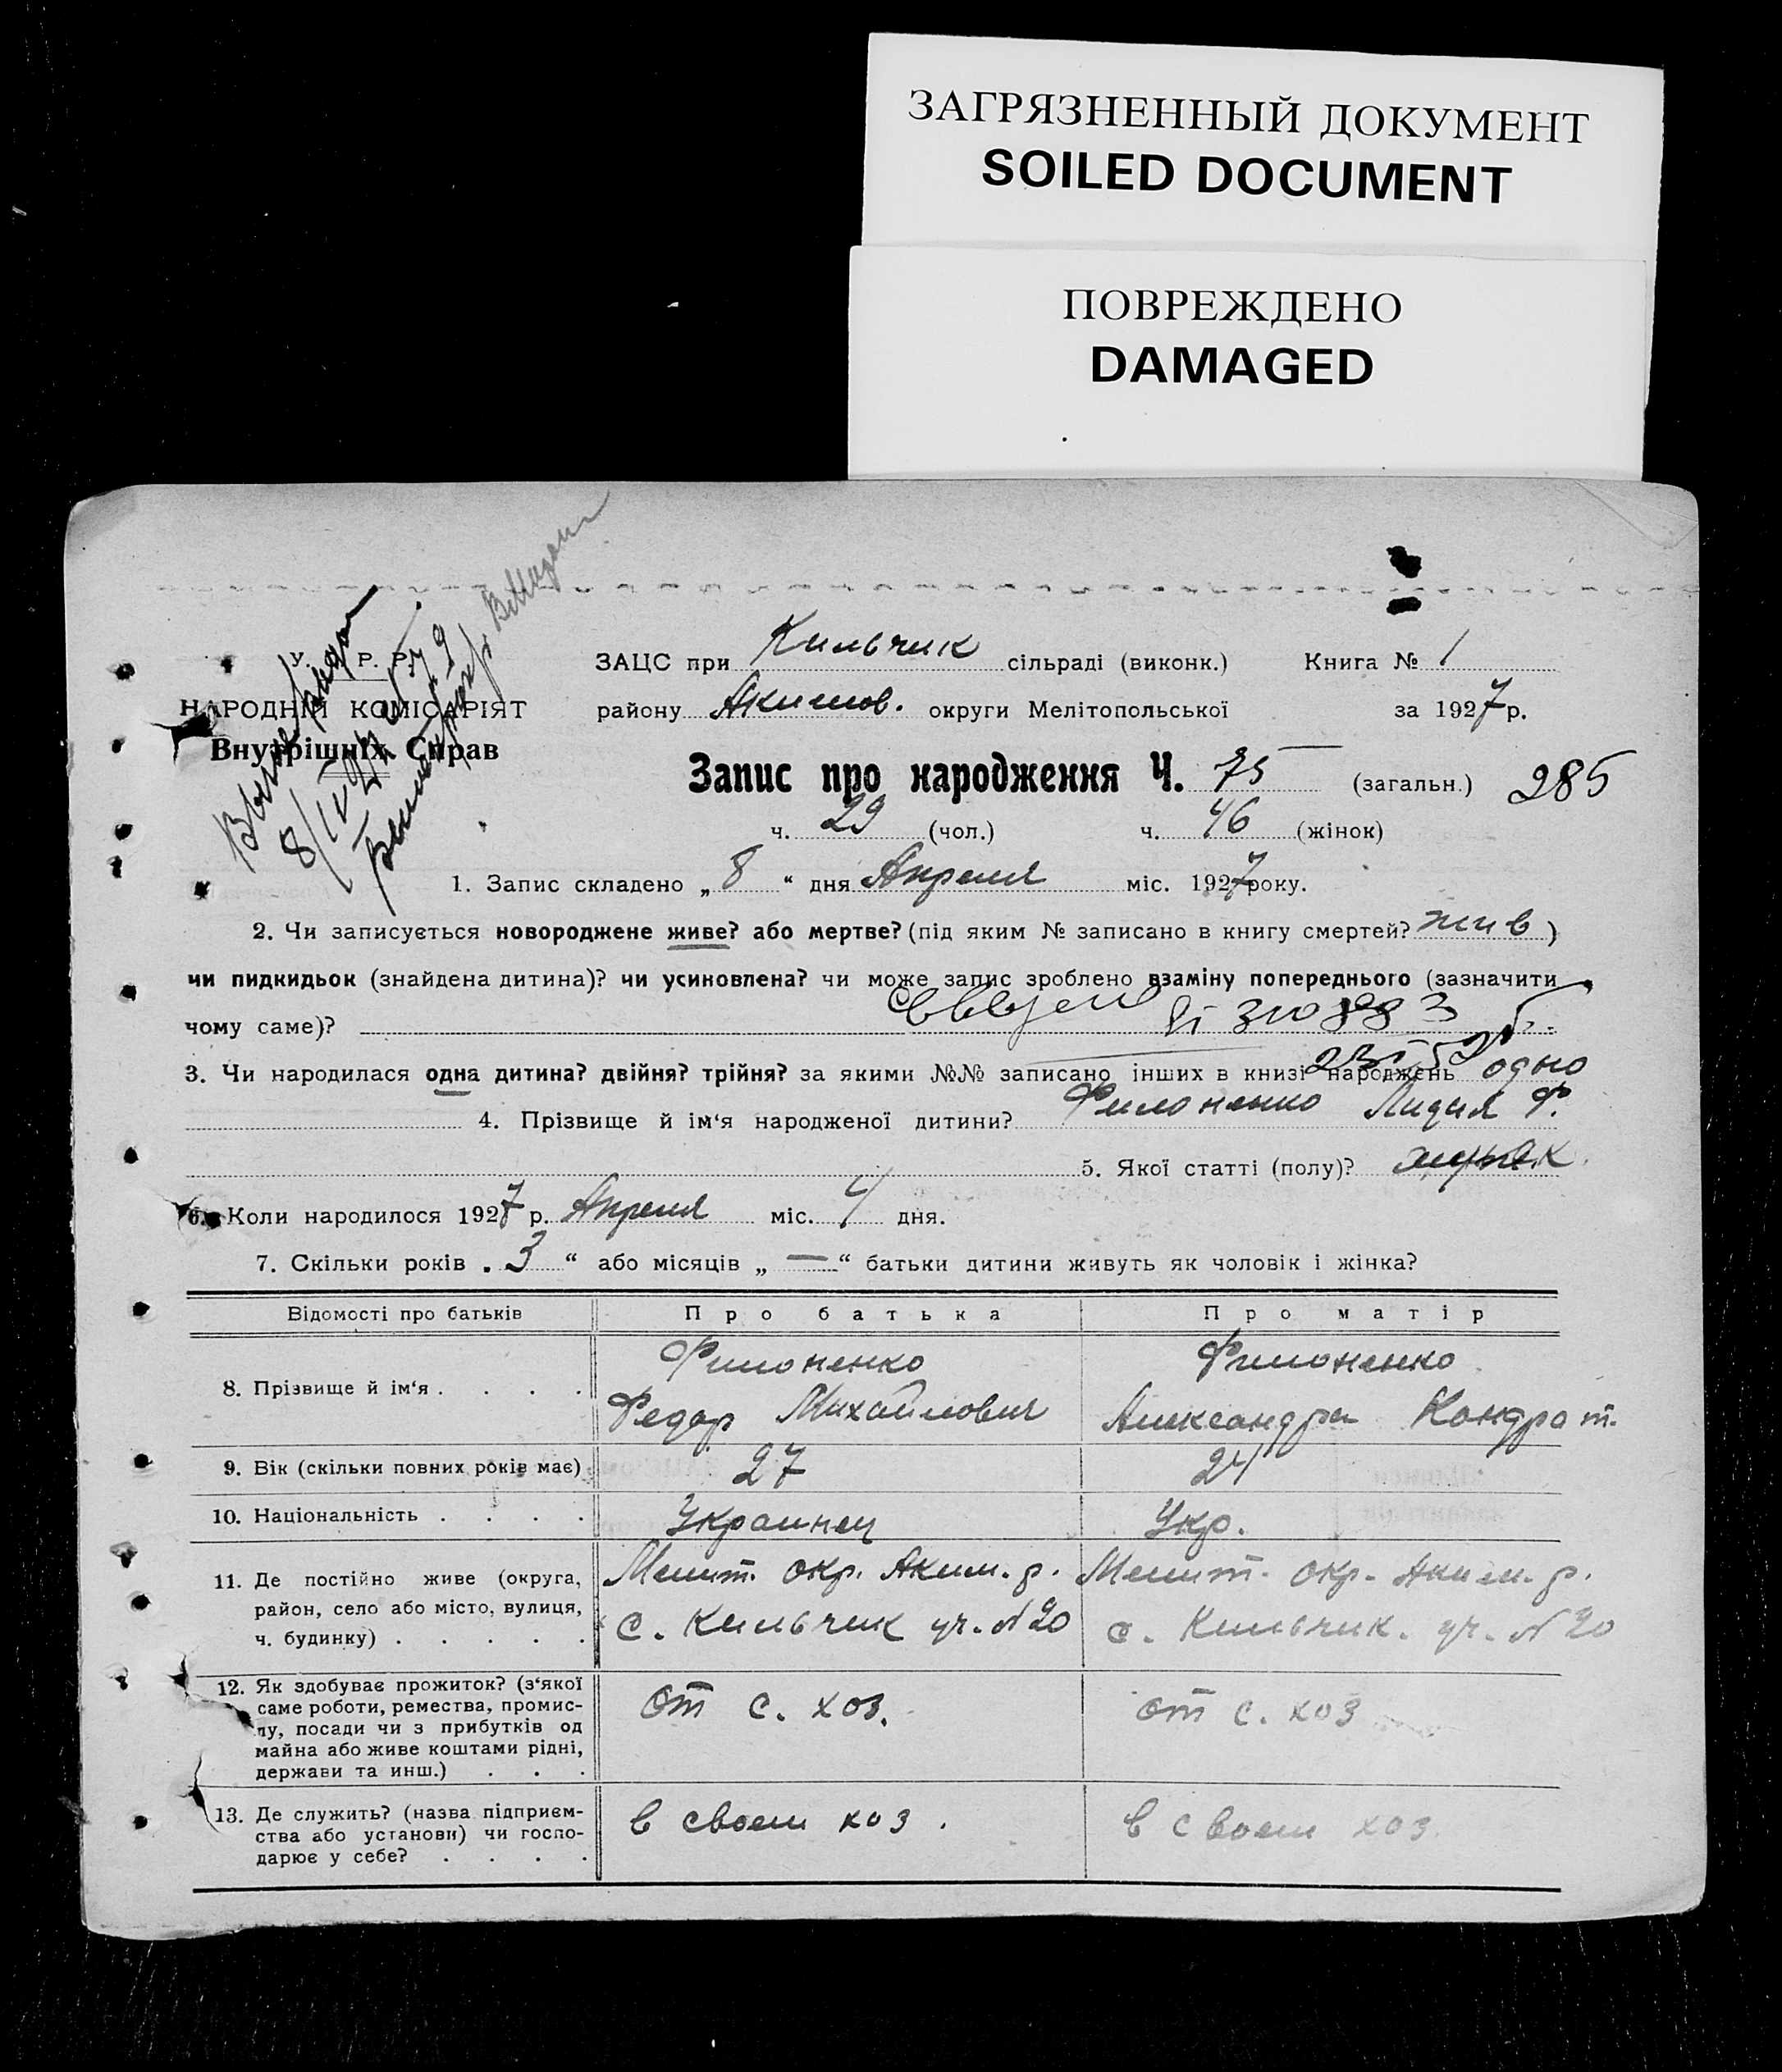 ЗАГРЯЗНЕННЫЙ ДОКУМЕНТ
SOILED DOCUMENT
ПОВРЕЖДЕНО
DAMAGED
У. Р. Р.
НАРОДНІЙ КОМІСАРІЯТ
Внутрішніх Справ
ЗАЦС при Кильчик сільраді (виконк.) Книга № 1
району Акимов. округи Мелітопольської за 1927 р.
Запис про народження Ч. 75 (загальн.) 285
ч. 29 (чол.) ч. 46 (жінок)
1. Запис складено „ 8 “ дня Апреля міс. 1927 року.
2. Чи записується новороджене живе? або мертве? (під яким № записано в книгу смертей? жив )
чи пидкидьок (знайдена дитина)? чи усиновлена? чи може запис зроблено взаміну попереднього (зазначити
чому саме)?
3. Чи народилася одна дитина? двійня? трійня? за якими №№ записано інших в книзі народжень одно
4. Прізвище й ім‘я народженої дитини? Филоненко Лидия Ф.
5. Якої статті (полу)?
6. Коли народилося 1927 р. Апреля міс. 4 дня.
7. Скільки років „ 3 “ або місяців „ — “ батьки дитини живуть як чоловік і жінка?
Відомості про батьків Про батька Про матір
8. Прізвище й ім‘я . . . . Филоненко Федор Михайлович Филоненко Александра Кондрат.
9. Вік (скільки повних років має) 27 24
10. Національність . . . . Украинец Укр.
11. Де постійно живе (округа, Мелит. окр. Аким. р. Мелит. окр. Аким. р.
район, село або місто, вулиця, с. Кильчик уч. N 20 с. Кильчик. уч. N 20
ч. будинку) . . . . .
12. Як здобуває прожиток? (з‘якої
саме роботи, ремества, промис- от с. хоз. от с. хоз
лу, посади чи з прибутків од
майна або живе коштами рідні,
держави та инш.) . . .
13. Де служить? (назва підприєм- в своем хоз. в своем хоз.
ства або установи) чи госпо-
дарює у себе? . . . .